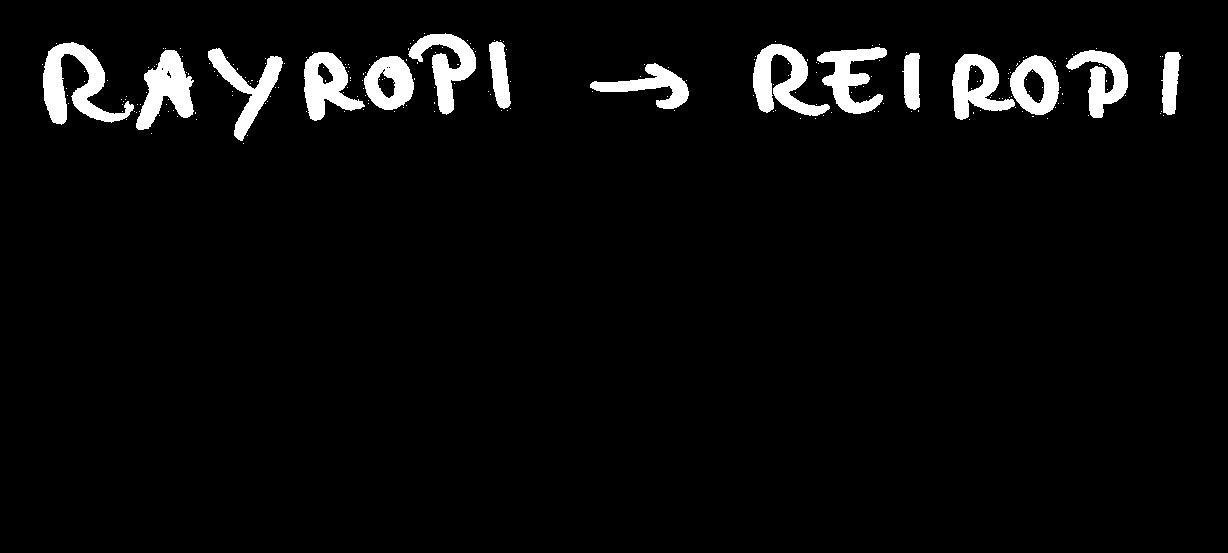 RAYROPI → REIROPI